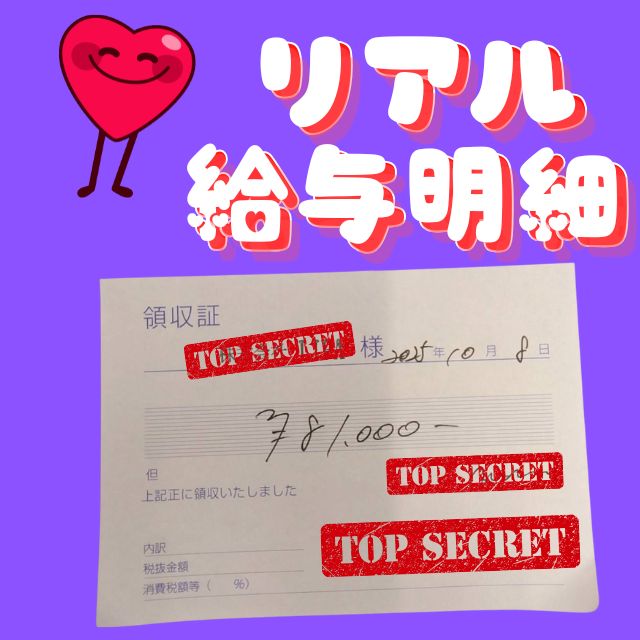 リアル
給与明細
領収証
TOP SECRET 様 2025年10月8日
¥81.000-
但
TOP SECRET
上記正に領収いたしました
内訳
TOP SECRET
税抜金額
消費税額等（　　%）